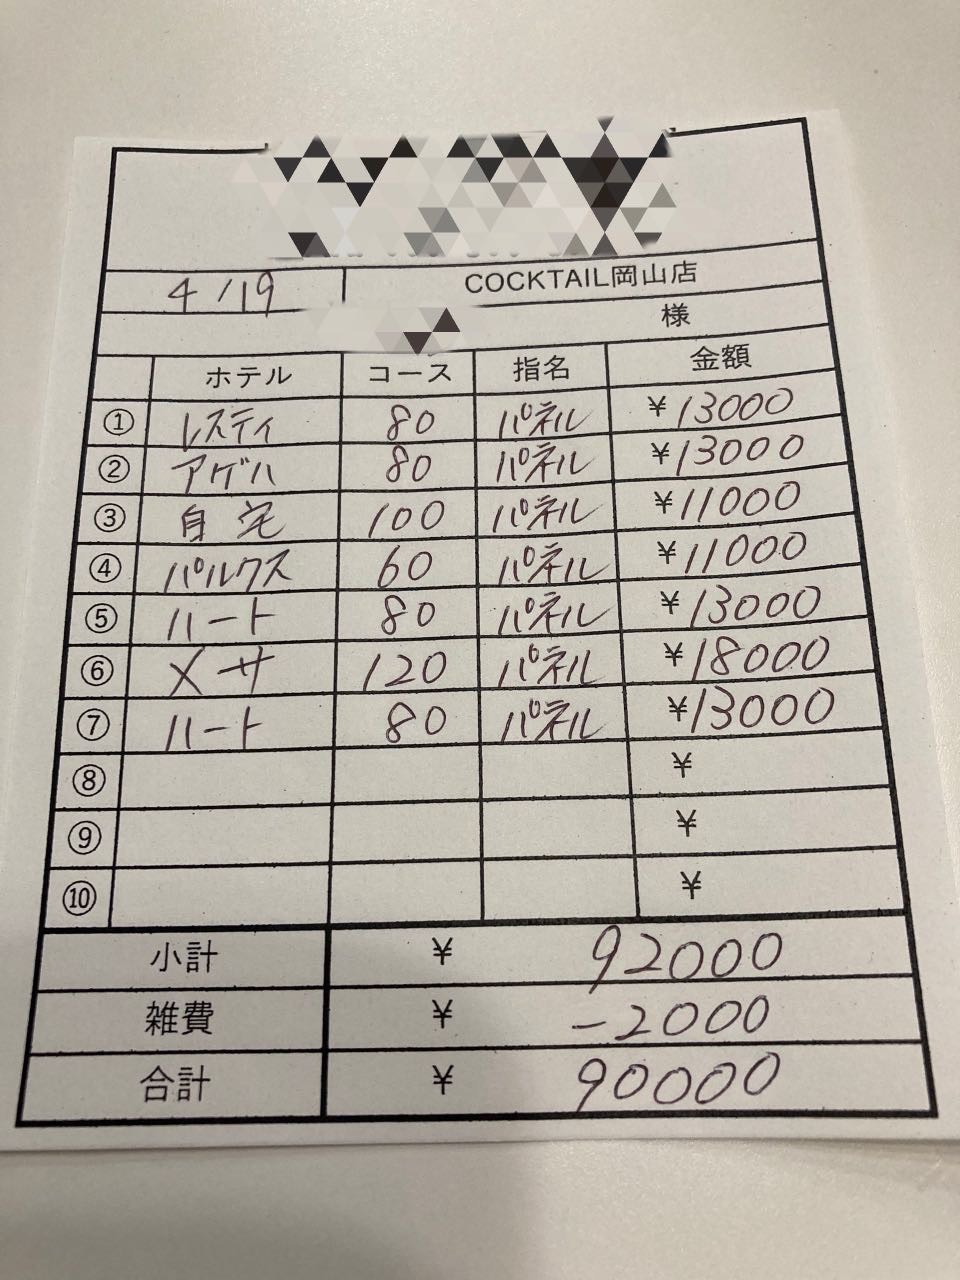 4/19 COCKTAIL岡山店
様
ホテル コース 指名 金額
① レスティ 80 パネル ¥13000
② アゲハ 80 パネル ¥13000
③ 自宅 100 パネル ¥11000
④ パルクス 60 パネル ¥11000
⑤ ハート 80 パネル ¥13000
⑥ メサ 120 パネル ¥18000
⑦ ハート 80 パネル ¥13000
⑧ ¥
⑨ ¥
⑩ ¥
小計 ¥ 92000
雑費 ¥ -2000
合計 ¥ 90000